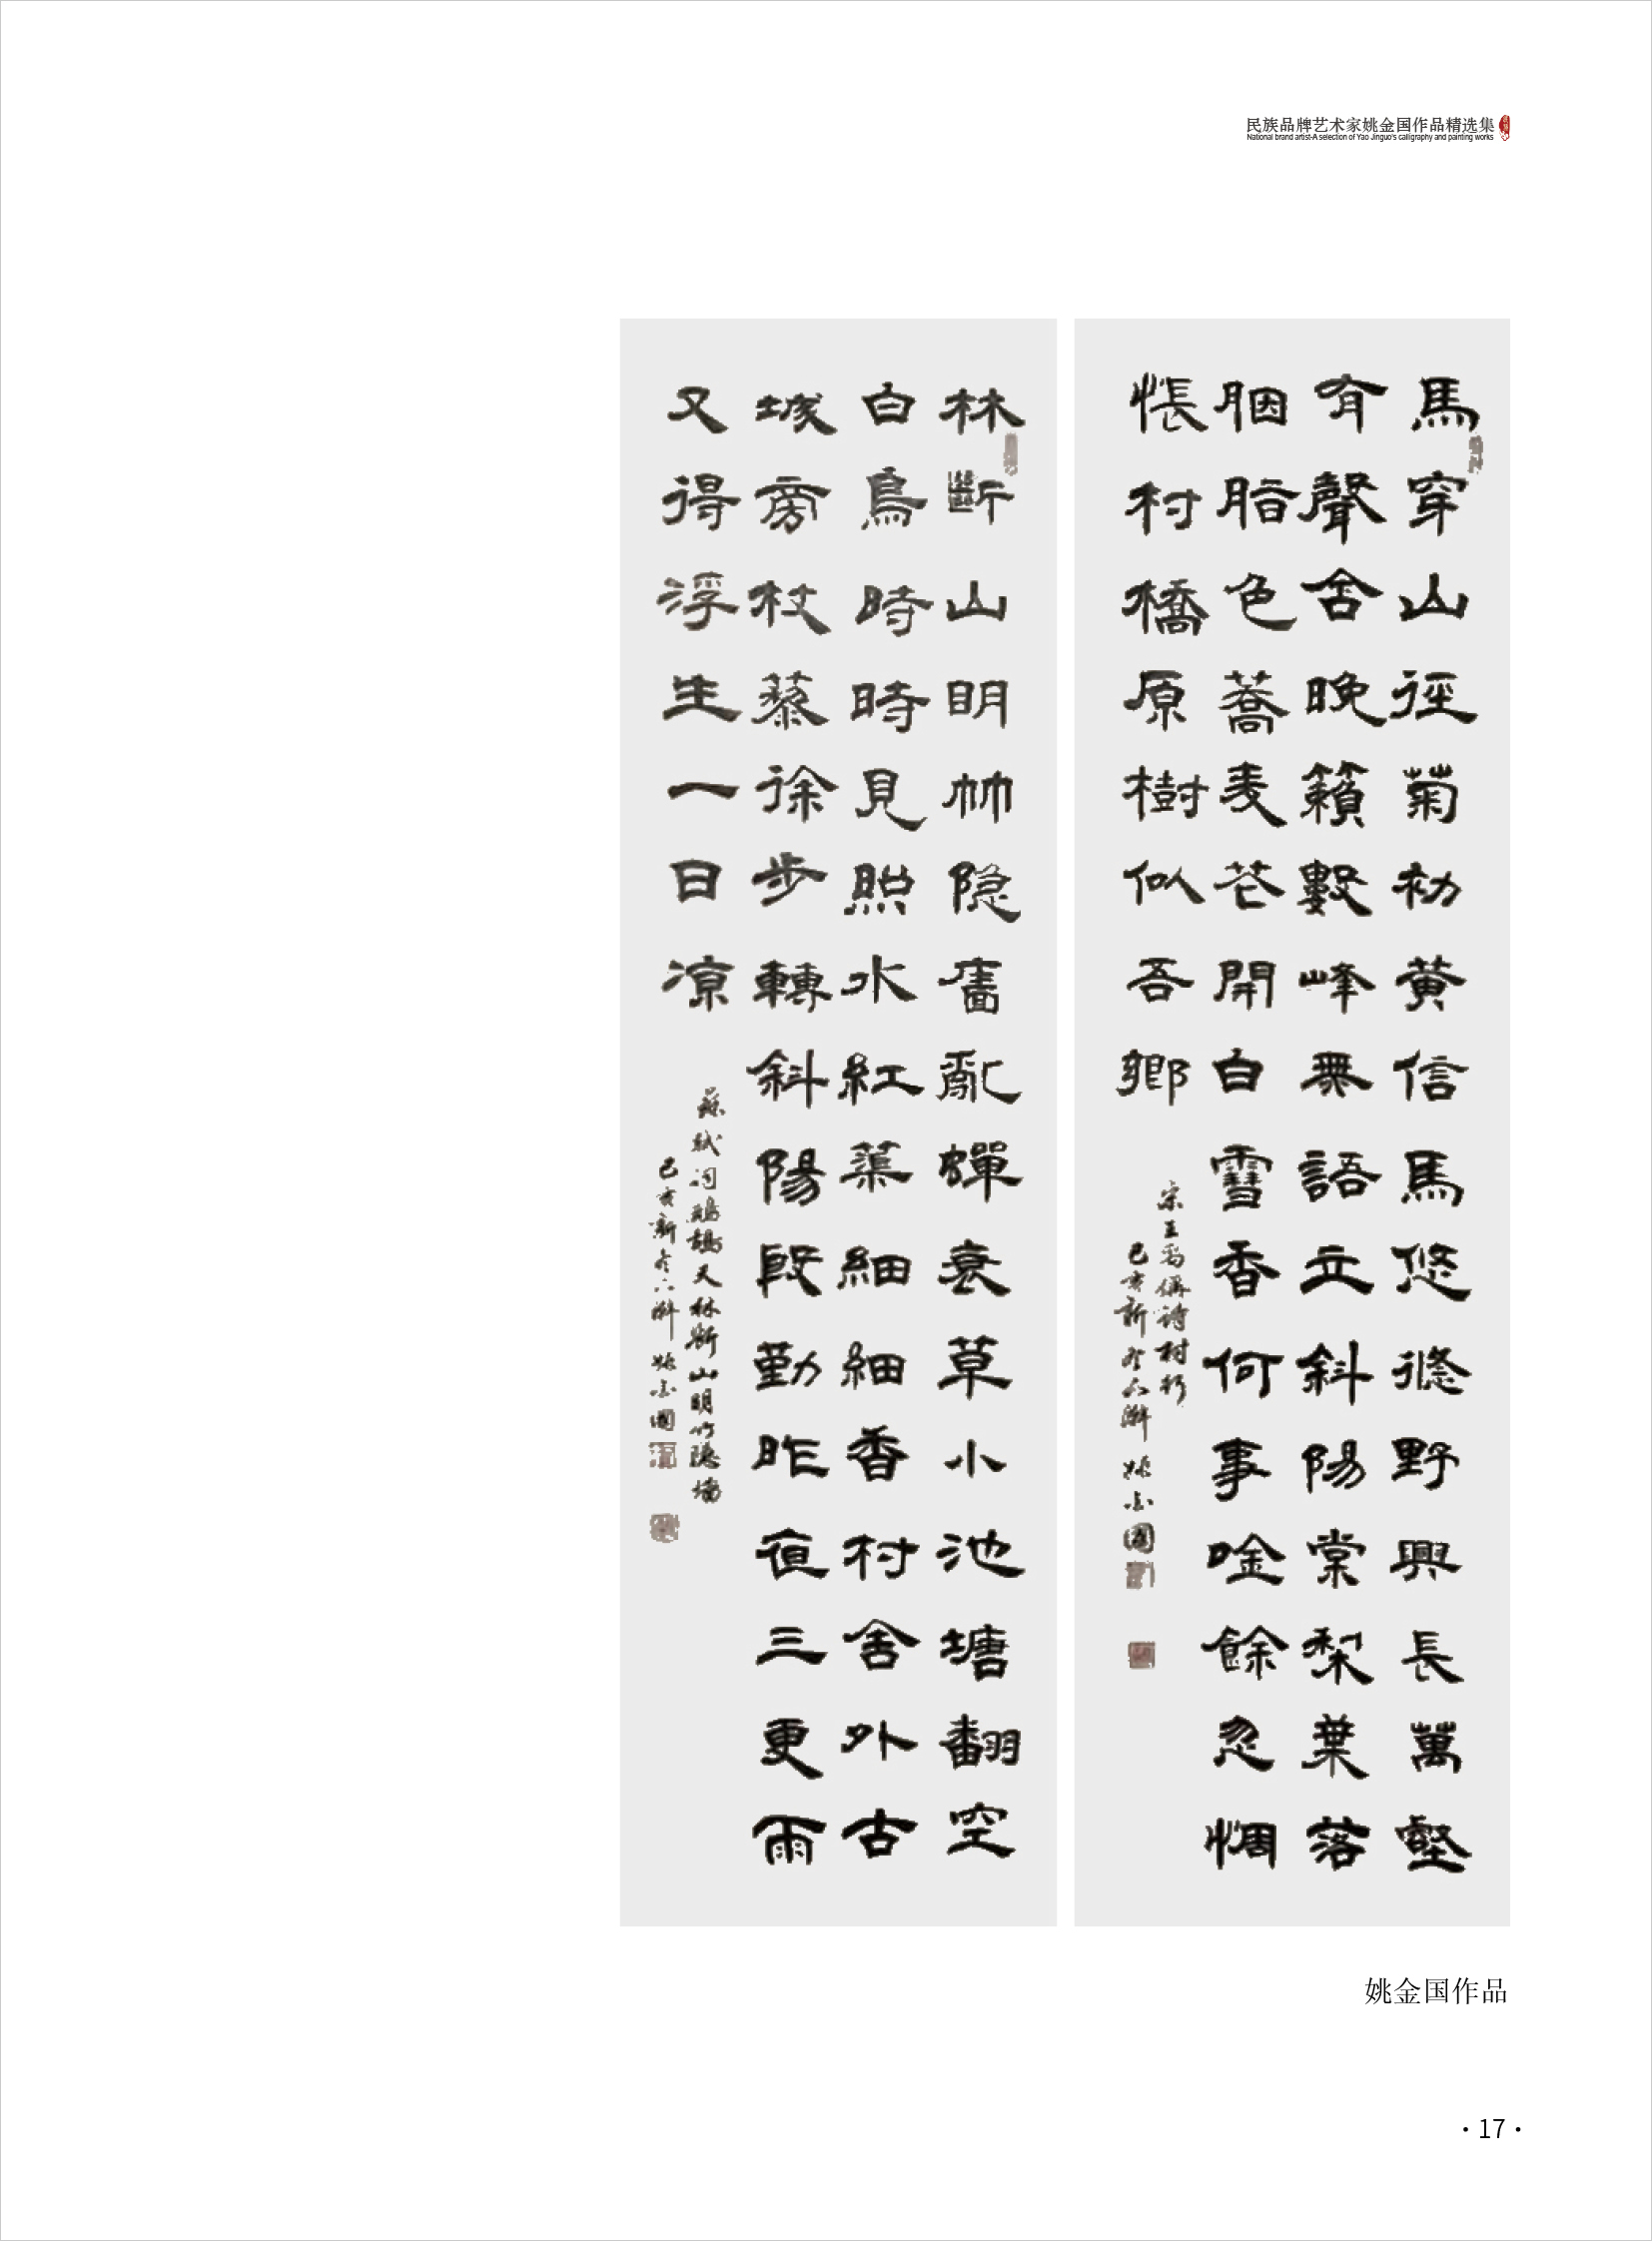 民族品牌艺术家姚金国作品精选集
National brand artist-A selection of Yao Jinguo's calligraphy and painting works
馬穿山徑菊初黄信馬悠悠野興長萬壑
有聲含晚籟數峰無語立斜陽棠梨葉落
胭脂色蕎麦花開白雪香何事唫餘忽惆
悵村橋原樹似吾鄉
宋王禹偁诗村行
己亥新冬六澥姚金國
林斷山明竹隐牆亂蟬衰草小池塘翻空
白鳥時時見照水紅蕖細細香村舍外古
城旁杖藜徐步轉斜陽殷勤昨夜三更雨
又得浮生一日凉
蘇軾词鹧鸪天林斷山明竹隐墙
己亥新冬六澥姚金國
姚金国作品
·17·